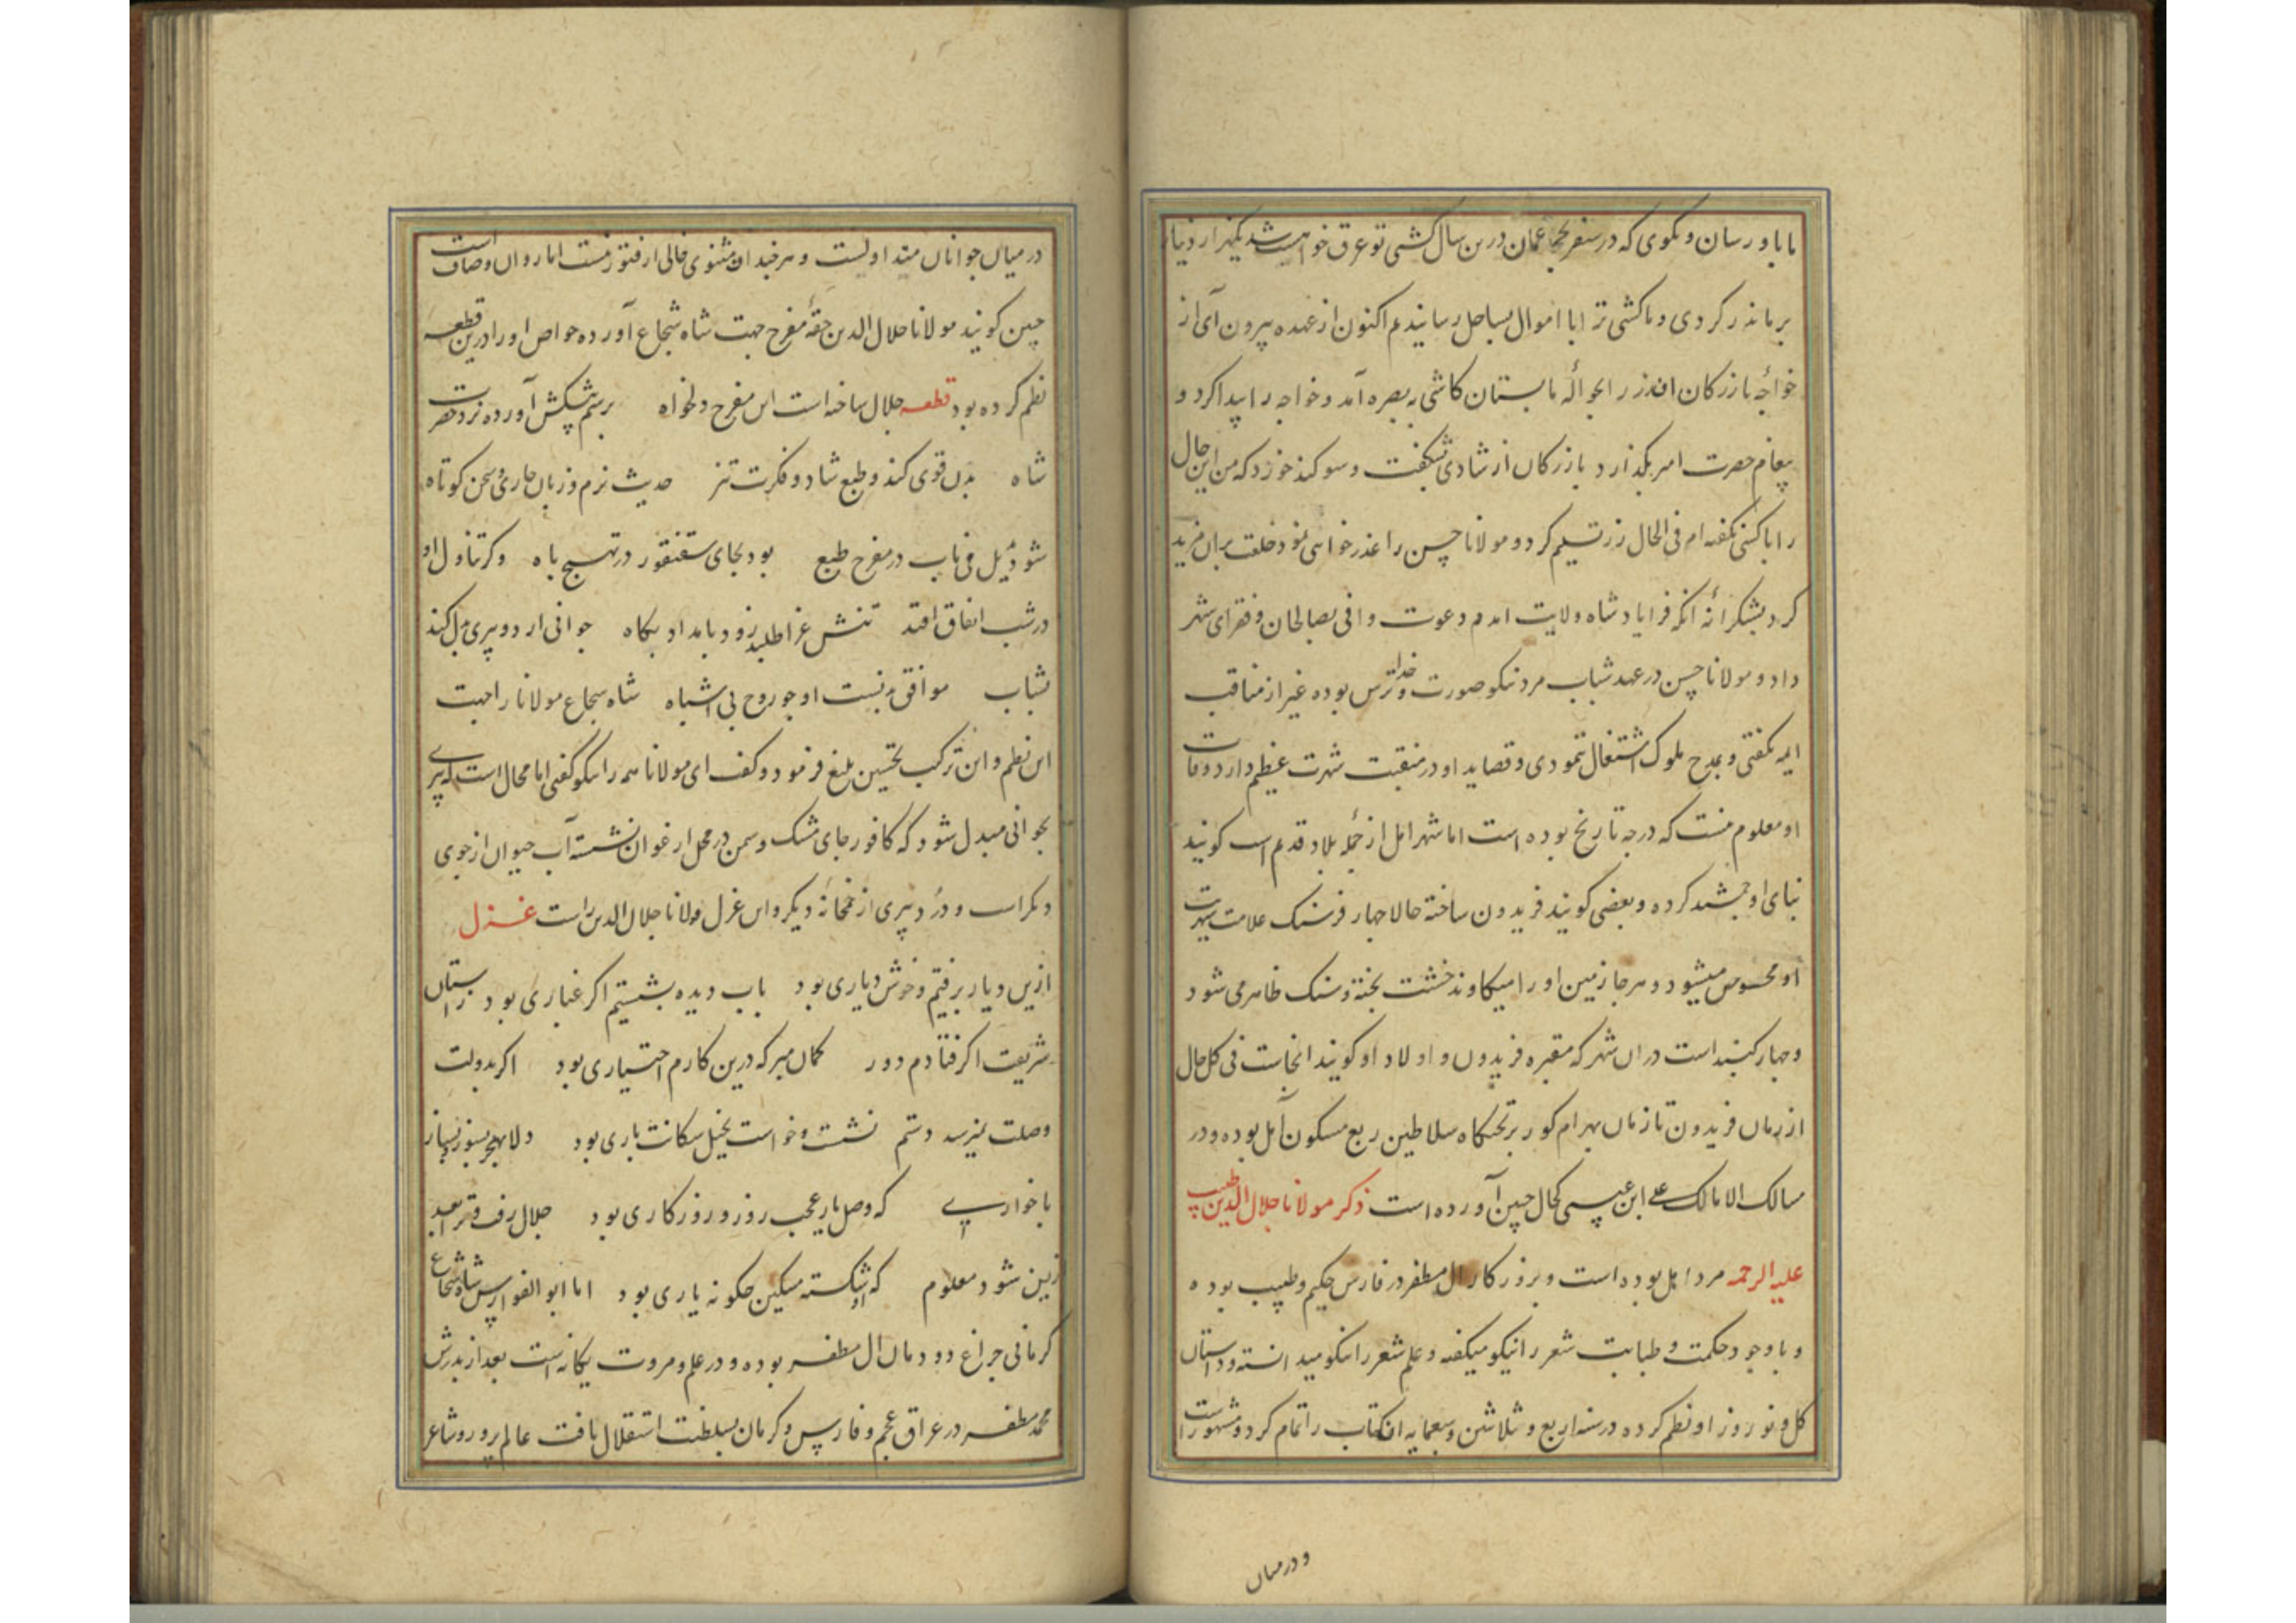 ما باو رسان و بکوی که در سفر بحر عمان درین سال کشتی تو غرق خواست شد یکهزار دینار
بر ما نذر کردی و ما کشتی ترا با اموال بساحل رسانیدیم اکنون از عهده بیرون آی از
خواجهٔ بازرکان آن زر را بحوالهٔ ما بستان کاشی به بصره آمد و خواجه را پیدا کرد و
پیغام حضرت امیر بکذارد بازرکان از شادی بشکفت و سوکند خورد که من این حال
را با کسی نکفته ام فی الحال زر تسلیم کرد و مولانا حسن را عذر خواهی نمود و خلعت بران مزید
کرد بشکرانهٔ آنکه فرا یاد شاه ولایت امدم دعوت وافی بصالحان و فقرای شهر
داد و مولانا حسن در عهد شباب مرد نیکو صورت و خدا ترس بوده غیر از مناقب
ایمه نکفتی و بمدح ملوک اشتغال ننمودی و قصاید او در منقبت شهرت عظیم دارد وفات
او معلوم نیست که در چه تاریخ بوده است اما شهر امل از جمله بلاد قدیم است کویند
بنای او جمشید کرده و بعضی کویند فریدون ساخته حالا چهار فرسنک علامت شهریت
او محسوس میشود و هر جا زمین او را میکاوند خشت پخته و سنک ظاهر می شود
و چهار کنبد است دران شهر که مقبره فریدون و اولاد او کویند انجاست فی کل حال
از زمان فریدون تا زمان بهرام کور بر تختکاه سلاطین ربع مسکون آمل بوده و در
مسالک الممالک علی ابن عیسی کحال چنین آورده است ذکر مولانا جلال الدین طبیب
علیه الرحمه مرد اهل بوده است و بروزکار ال مظفر در فارس حکیم و طبیب بوده
و با وجود حکمت و طبابت شعر را نیکو میکفته و علم شعر را نیکو میدانسته و داستان
کل و نوروز او نظم کرده در سنه اربع و ثلاثین و سبعمایه ان کتاب را تمام کرد و مشهور است
و در میان
در میان جوانان متداولست و هر چند ان مثنوی خالی از فتور نیست اما روان و صاف است
چنین کویند مولانا جلال الدین حقهٔ مفرح جهت شاه شجاع آورده خواص او را درین قطعه
نظم کرده بود قطعه جلال ساخته است این مفرح دلخواه برسم پیشکش آورده نزد حضرت
شاه بدن قوی کند و طبع شاد و فکرت تیز حدیث نرم و زبان جاری و سخن کوتاه
شود بدیل می ناب در مفرح طبع بود بجای سقنقور در تهییج باه و کر تناول او
در شب اتفاق افتد تنش غذا طلبد زود بامداد بکاه جوانی آرد و پیری بدل کند
بشباب موافق بدنست او چو روح بی اشباه شاه شجاع مولانا را جهت
این نظم و این ترکیب تحسین بلیغ فرمود و کفت ای مولانا همه را نیکو کفتی اما محال است که پیری
بجوانی مبدل شود که کافور جای مشک و سمن در محل ارغوان نشسته آب حیوان از جوی
دیکر است و درد پیری از خمخانهٔ دیکر و این غزل مولانا جلال الدین راست غزل
ازین دیار برفتیم و خوش دیاری بود باب دیده بشستیم اکر غباری بود ز استان
شریفت اکر فتادم دور کمان مبر که درین کارم اختیاری بود اکر بدولت
وصلت نمیرسد دستم نشست و خواست بخیل سکانت باری بود دلا بهجر بسوز و بساز
با خواریے که وصل یار عجب روز و روزکاری بود جلال رفت و ترا بعد
زین شود معلوم که او شکسته مسکین چکونه یاری بود اما ابو الفوارس شاه شجاع
کرمانی چراغ دودمان ال مظفر بوده و در علم و مروت یکانه است بعد از پدرش
محمد مظفر در عراق عجم و فارس و کرمان بسلطنت استقلال یافت عالم پرور و شاعر